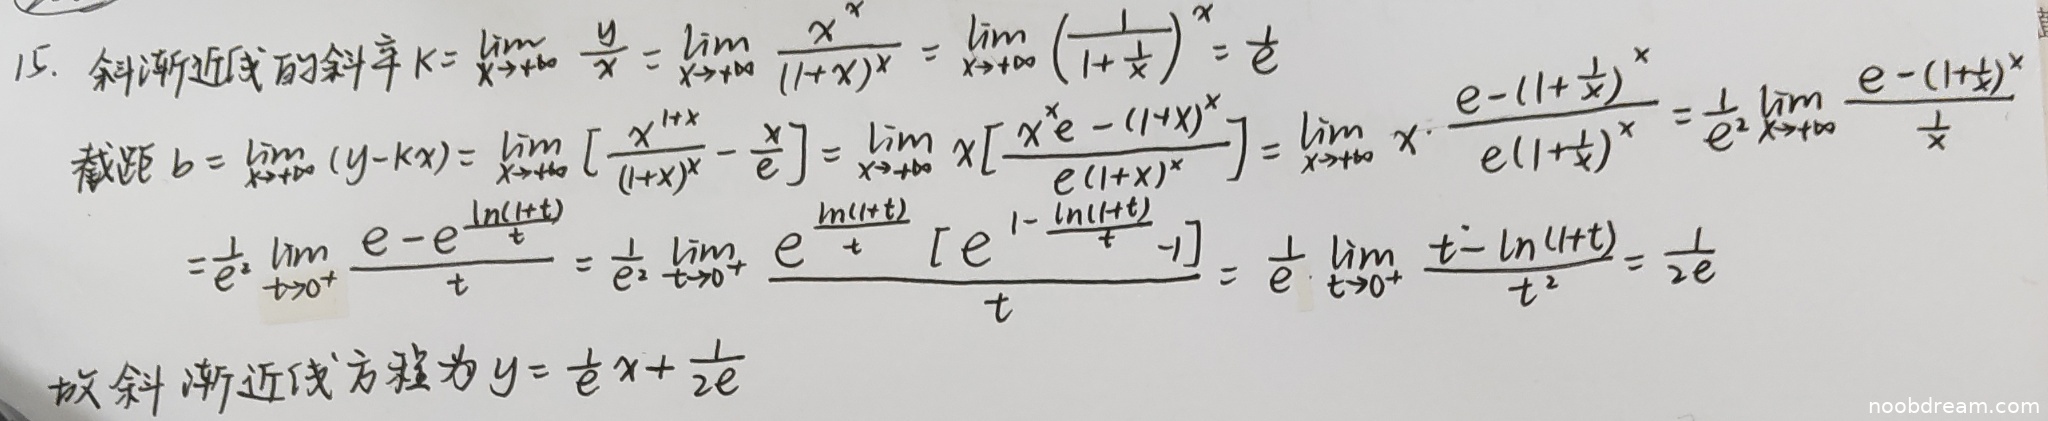 15. 斜渐近线的斜率 K = lim_{x→+∞} y/x = lim_{x→+∞} x^x/(1+x)^x = lim_{x→+∞} (1/(1+1/x))^x = 1/e
截距 b = lim_{x→+∞} (y-kx) = lim_{x→+∞} [x^{1+x}/(1+x)^x - x/e] = lim_{x→+∞} x[(x^x e - (1+x)^x)/(e(1+x)^x)] = lim_{x→+∞} x · (e-(1+1/x)^x)/(e(1+1/x)^x) = 1/e² lim_{x→+∞} (e-(1+1/x)^x)/(1/x)
= 1/e² lim_{t→0⁺} (e - e^{ln(1+t)/t})/t = 1/e² lim_{t→0⁺} (e^{ln(1+t)/t} [e^{1-ln(1+t)/t} -1])/t = 1/e · lim_{t→0⁺} (t - ln(1+t))/t² = 1/(2e)
故斜渐近线方程为 y = 1/e x + 1/(2e)
noobdream.com